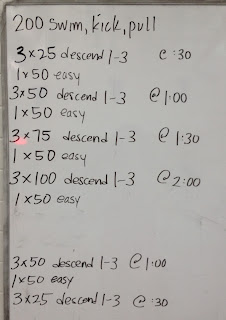 200 swim, kick, pull
3x25 descend 1-3 @ :30
1x50 easy
3x50 descend 1-3 @ 1:00
1x50 easy
3x75 descend 1-3 @ 1:30
1x50 easy
3x100 descend 1-3 @ 2:00
1x50 easy
3x50 descend 1-3 @ 1:00
1x50 easy
3x25 descend 1-3 @ :30